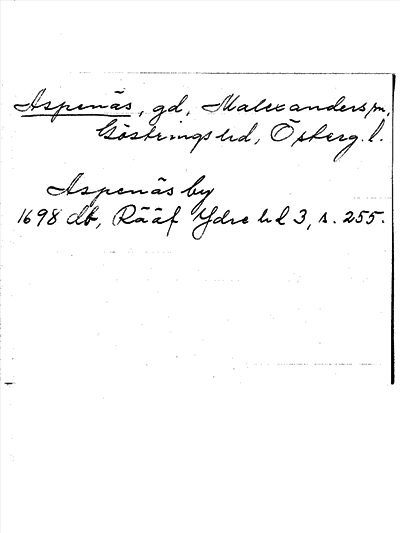 Aspenäs, gd, Malexanders sn,
Göstrings hd, Österg. l.
Aspenäs by
1698 db, Rääf Ydre hd 3, s. 255.